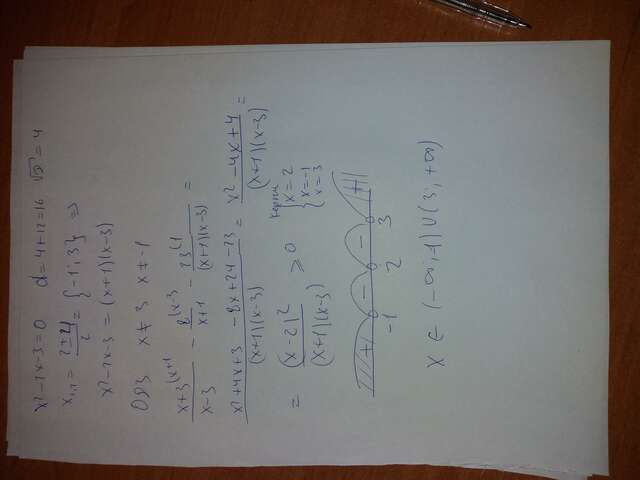 x²-2x-3=0 d=4+12=16 √D=4
x₁,₂ = (2±4)/2 = {-1; 3} ⇒
x²-2x-3 = (x+1)(x-3)
ОДЗ x≠3 x≠-1
(x+3)^(x+1)/(x-3) - 8^(x-3)/(x+1) - 23^(1)/((x+1)(x-3)) =
(x²+4x+3-8x+24-23)/((x+1)(x-3)) = (x²-4x+4)/((x+1)(x-3)) =
= (x-2)²/((x+1)(x-3)) ≥ 0 корни { x=2 { x=-1 x=3
+ - - +
-1 2 3
x ∈ (-∞; -1) U (3; +∞)